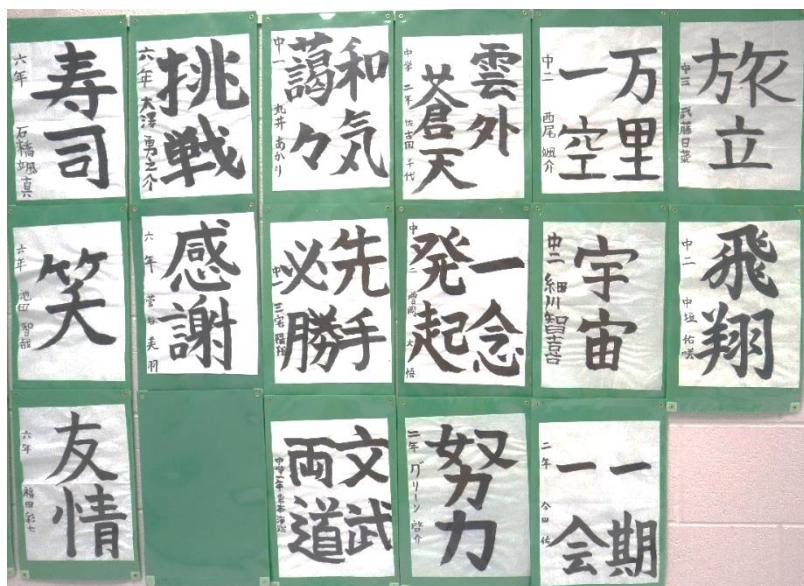 寿司
六年 石橋颯真
挑戦
六年 大澤勇之介
和気
藹々
中一 丸井あかり
雲外
蒼天
中学二年 佐古田千代
万里
一空
中二 西尾颯介
旅立
中三 武藤日菜
笑
六年 池田智
感謝
六年
先手
必勝
中一 三宅陽翔
一念
発起
中二
宇宙
中二 細川智喜
飛翔
中二 中垣佑咲
友情
六年 稲田
文武
両道
努力
二年 グリーン啓介
一期
一会
二年 今田佑